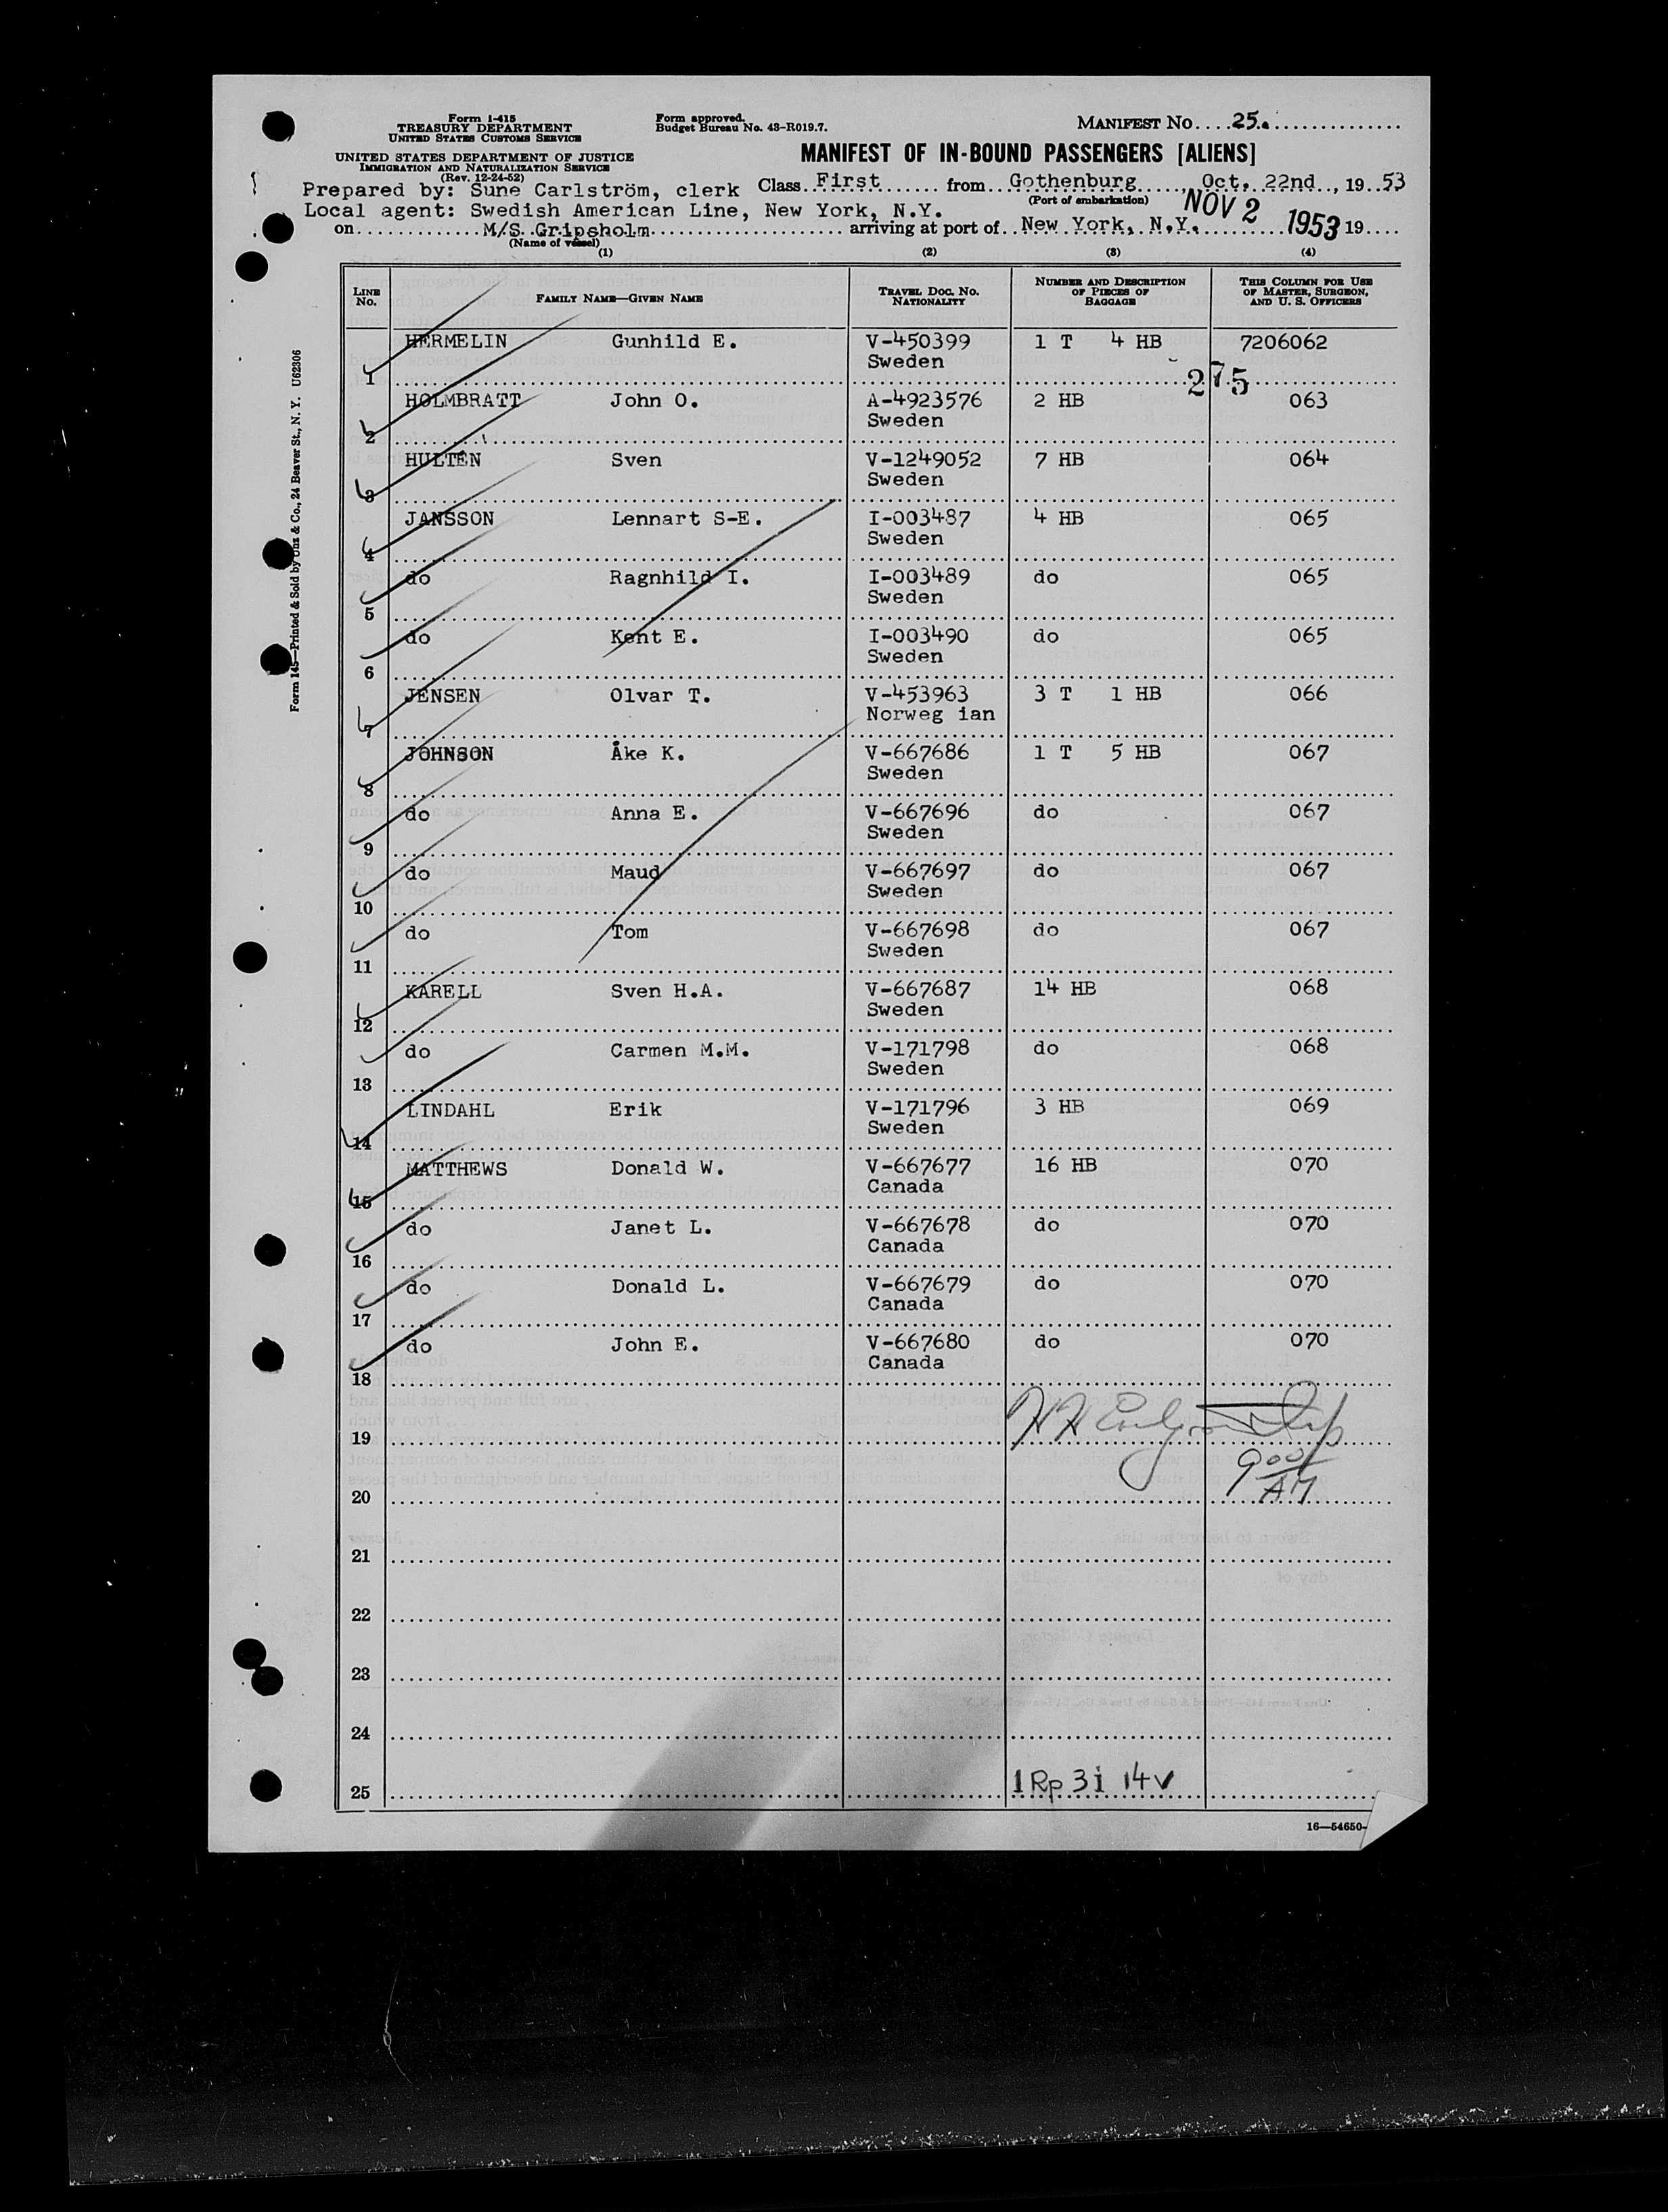 Form I-415
TREASURY DEPARTMENT
UNITED STATES CUSTOMS SERVICE
UNITED STATES DEPARTMENT OF JUSTICE
IMMIGRATION AND NATURALIZATION SERVICE
(Rev. 12-24-52)
Form approved.
Budget Bureau No. 43-R019.7.
MANIFEST NO....25.
MANIFEST OF IN-BOUND PASSENGERS [ALIENS]
Prepared by: Sune Carlström, clerk Class..First....... from..Gothenburg....., Oct. 22nd.., 19..53
(Port of embarkation)
Local agent: Swedish American Line, New York, N.Y.
NOV 2 1953
on.............M/S Gripsholm.................... arriving at port of..New York, N.Y...........19....
(Name of vessel)
(1) (2) (3) (4)
LINE NO. FAMILY NAME—GIVEN NAME TRAVEL DOC. NO. NATIONALITY NUMBER AND DESCRIPTION OF PIECES OF BAGGAGE THIS COLUMN FOR USE OF MASTER, SURGEON, AND U. S. OFFICERS
HERMELIN Gunhild E. V-450399 1 T 4 HB 7206062
1 Sweden
275
HOLMBRATT John O. A-4923576 2 HB 063
2 Sweden
HULTÉN Sven V-1249052 7 HB 064
3 Sweden
JANSSON Lennart S-E. I-003487 4 HB 065
4 Sweden
do Ragnhild I. I-003489 do 065
5 Sweden
do Kent E. I-003490 do 065
6 Sweden
JENSEN Olvar T. V-453963 3 T 1 HB 066
7 Norweg ian
JOHNSON Åke K. V-667686 1 T 5 HB 067
8 Sweden
do Anna E. V-667696 do 067
9 Sweden
do Maud V-667697 do 067
10 Sweden
do Tom V-667698 do 067
11 Sweden
KARELL Sven H.A. V-667687 14 HB 068
12 Sweden
do Carmen M.M. V-171798 do 068
13 Sweden
LINDAHL Erik V-171796 3 HB 069
14 Sweden
MATTHEWS Donald W. V-667677 16 HB 070
15 Canada
do Janet L. V-667678 do 070
16 Canada
do Donald L. V-667679 do 070
17 Canada
do John E. V-667680 do 070
18 Canada
19
900
AM
20
21
22
23
24
1 Rp 3 i 14 v
25
16—54650-
Form 145—Printed & Sold by Unz & Co., 24 Beaver St., N. Y. U62306